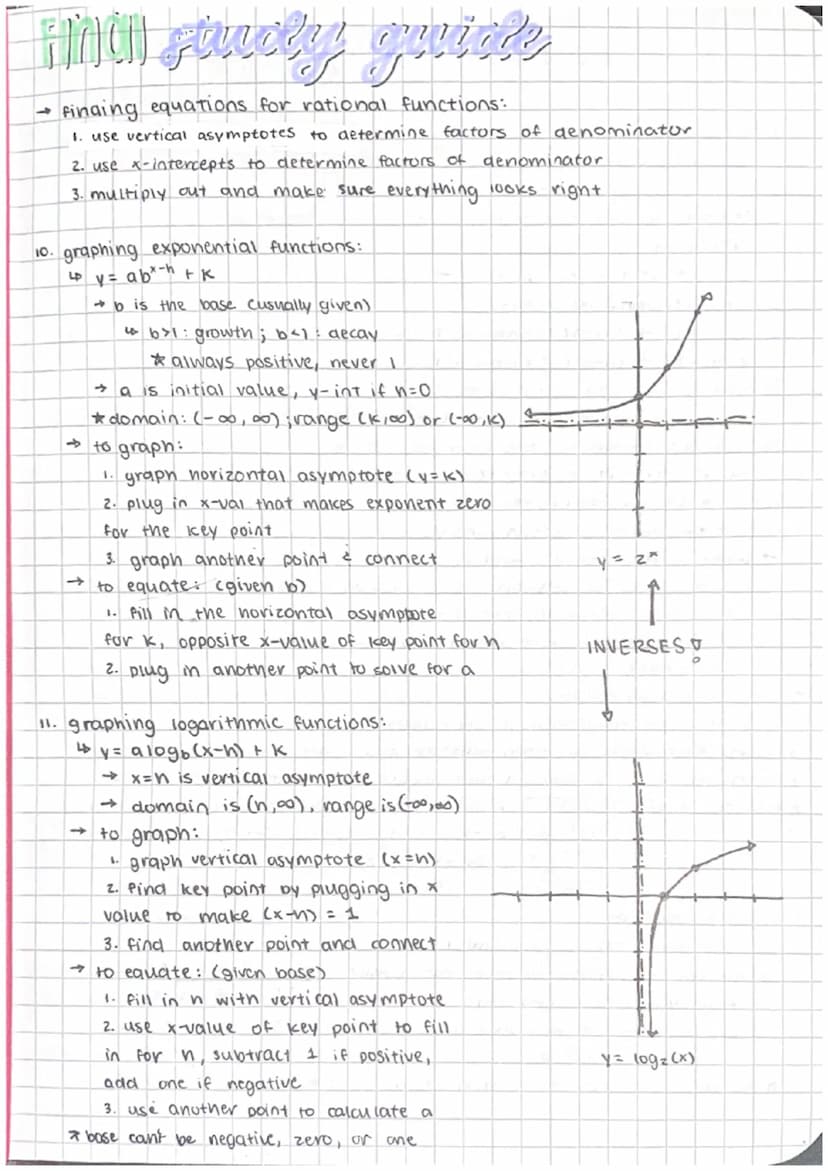 Final study guide
→ finding equations for rational functions:
1. use vertical asymptotes to determine factors of denominator
2. use x-intercepts to determine factors of denominator
3. multiply out and make sure everything looks right
10. graphing exponential functions:
↳ y = ab^(x-h) + k
→ b is the base (usually given)
↳ b>1: growth; b<1: decay
* always positive, never 1
→ a is initial value, y-int if h=0
* domain: (-∞, ∞); range (k,∞) or (-∞,k)
→ to graph:
1. graph horizontal asymptote (y=k)
2. plug in x-val that makes exponent zero
for the key point
3. graph another point & connect
y = 2^x
→ to equate: (given b)
1. fill in the horizontal asymptote
for k, opposite x-value of key point for h
INVERSES!
2. plug in another point to solve for a
11. graphing logarithmic functions:
↳ y = a log_b (x-h) + k
→ x=h is vertical asymptote
→ domain is (h,∞), range is (-∞,∞)
→ to graph:
1. graph vertical asymptote (x=h)
2. find key point by plugging in x
value to make (x-h) = 1
3. find another point and connect
→ to equate: (given base)
1. fill in h with vertical asymptote
2. use x-value of key point to fill
in for h, subtract 1 if positive,
add one if negative
y = log_2 (x)
3. use another point to calculate a
* base can't be negative, zero, or one